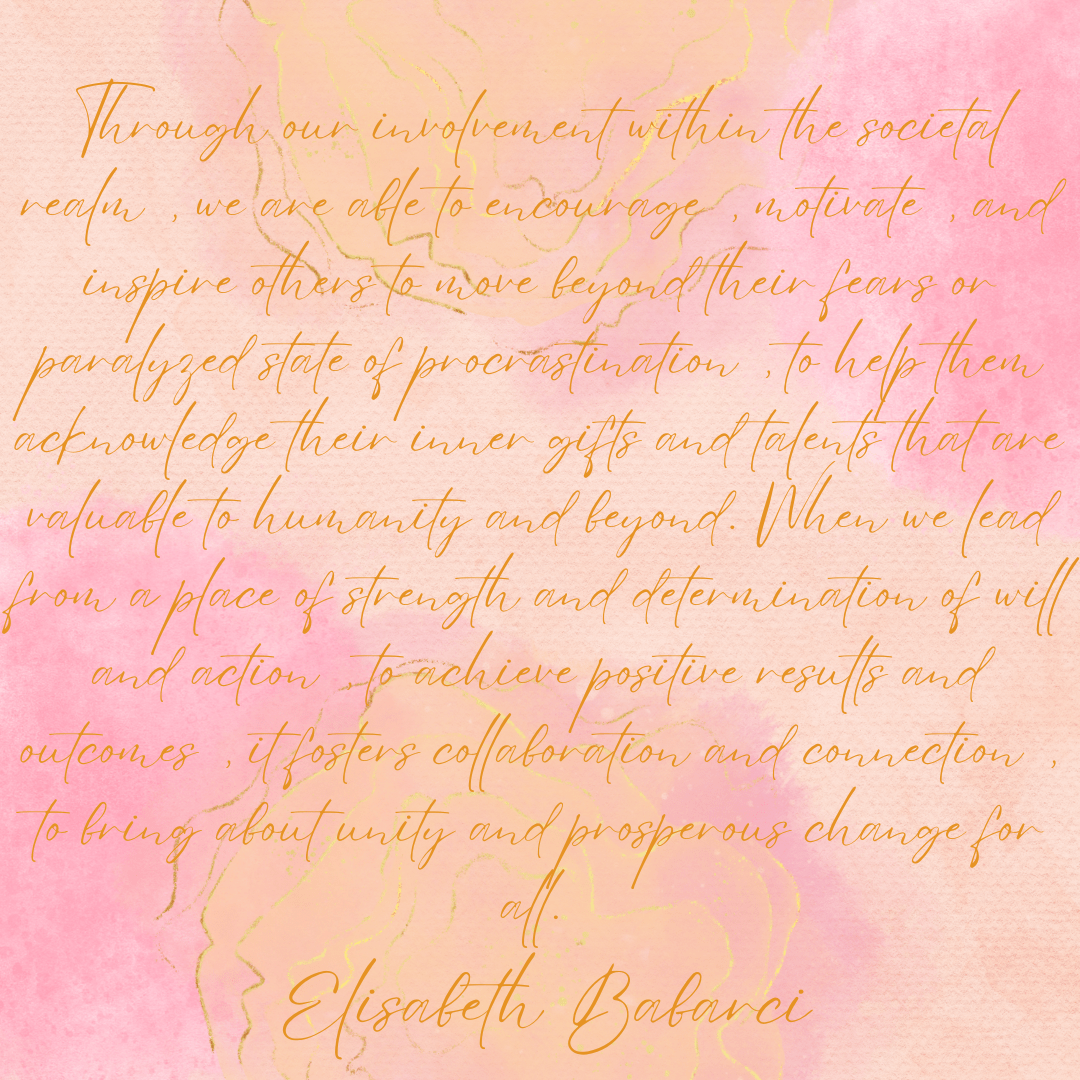 Through our involvement within the societal
realm , we are able to encourage , motivate , and
inspire others to move beyond their fears or
paralyzed state of procrastination , to help them
acknowledge their inner gifts and talents that are
valuable to humanity and beyond. When we lead
from a place of strength and determination of will
and action , to achieve positive results and
outcomes , it fosters collaboration and connection ,
to bring about unity and prosperous change for
all.
Elisabeth Babarci